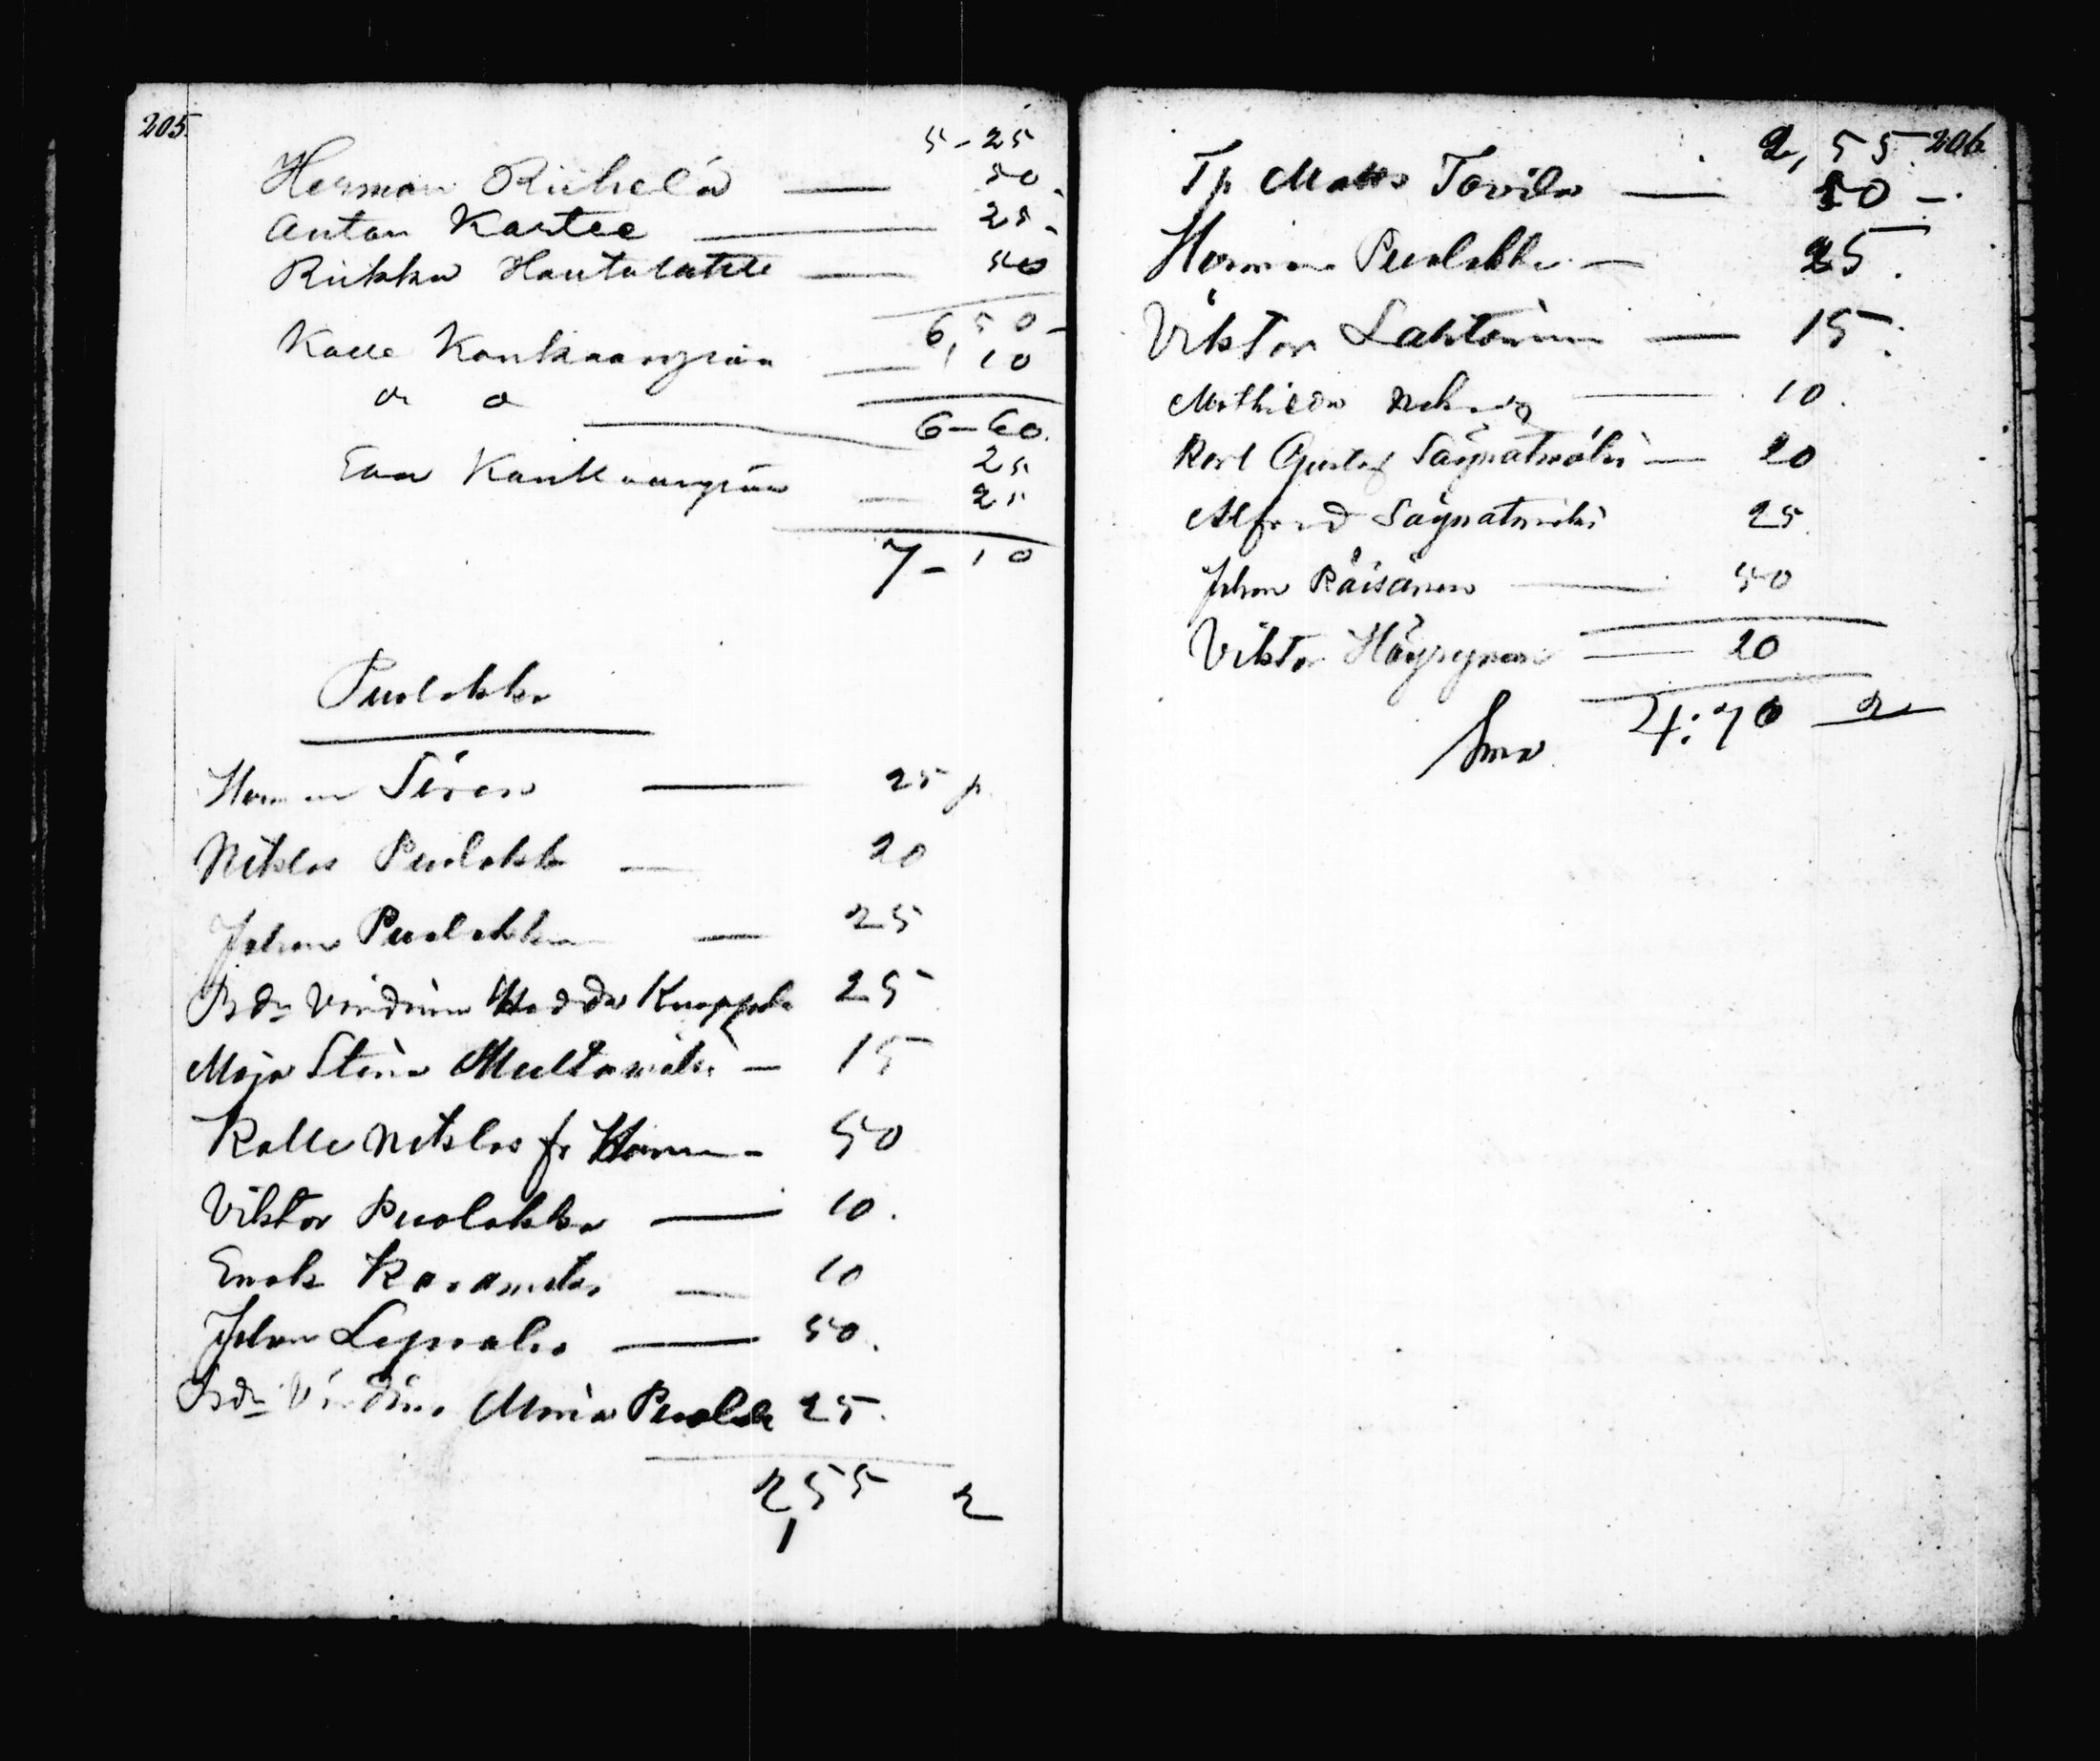 205
5-25
Herman Riihelä — 50.
Anton Kartee — 25.
Riikka Hautalahti — 50
6,50-
Kalle Kankaanpää — 10
d o
6-60.
Eva Kankaanpää 25
— 25
7-10
Puolakka
Herman Siren — 25 p
Niklas Puolakk — 20
Johan Puolakka — 25
Bdr Värdinn Hedda Knuppila 25
Maja Stina Multamäki — 15
Kalle Niklas fr Hannu - 50
Viktor Puolakka — 10.
Enok Karamäki — 10
Johan Lepealro — 50.
Bdr Värdinn Maria Puolak 25.
2,55 2
2,55 206
Tp Matts Tovila — 50 -.
Herman Puolakka — 25.
Viktor Lahtonen — 15.
Mathilda — 10.
Karl Gustaf Säynätmäki — 20
Alfred Säynatmäki 25.
Johan Räisänen — 50
Viktor Höysynen — 20
Sma 4:70